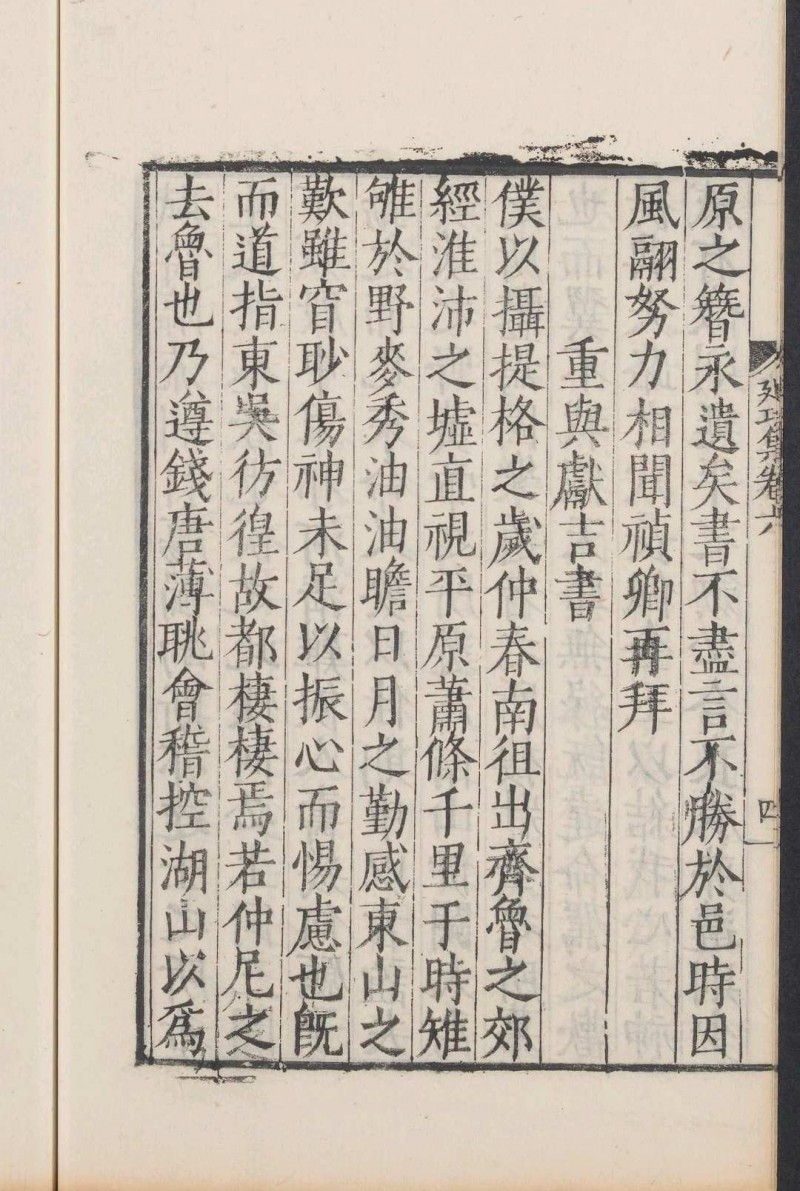 廸功集卷六
四
原之簪永遺矣書不盡言不勝於邑時因
風翮努力相聞禎卿再拜
重與獻吉書
僕以攝提格之歲仲春南徂出齊魯之郊
經淮沛之墟直視平原蕭條千里于時雉
雊於野麥秀油油瞻日月之勤感東山之
歎雖窅眇傷神未足以振心而惕慮也旣
而道指東吳彷徨故都棲棲焉若仲尼之
去魯也乃遵錢唐薄眺會稽控湖山以爲